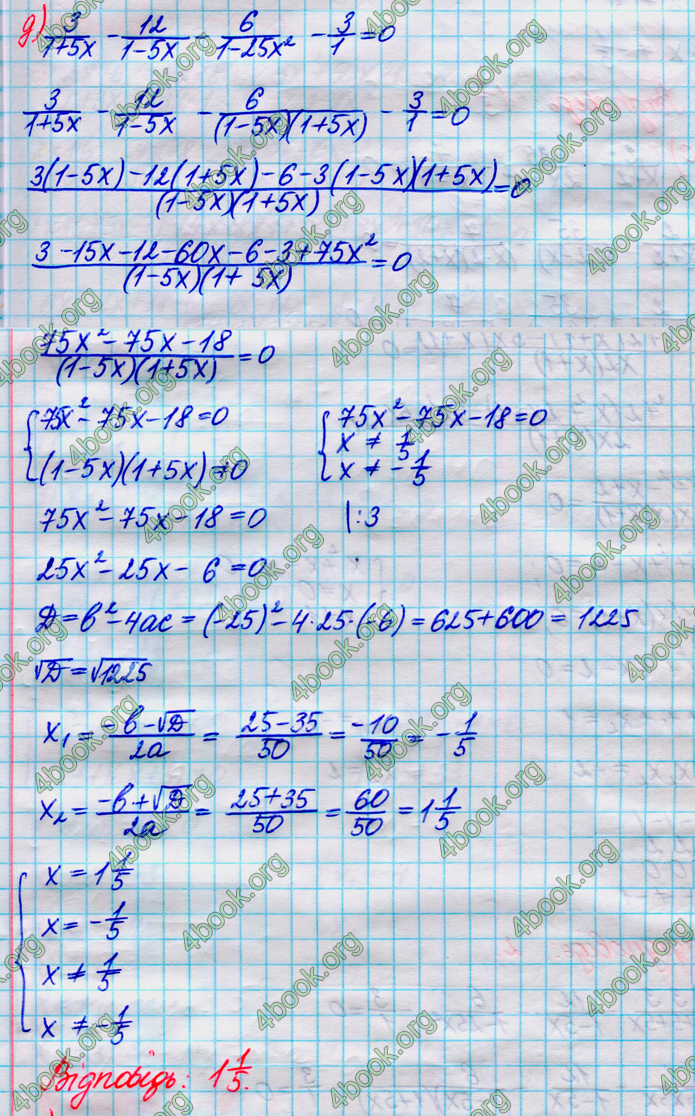 д) 3/(1+5x) - 12/(1-5x) - 6/(1-25x²) - 3/1 = 0
3/(1+5x) - 12/(1-5x) - 6/((1-5x)(1+5x)) - 3/1 = 0
(3(1-5x)-12(1+5x)-6-3(1-5x)(1+5x))/((1-5x)(1+5x)) = 0
(3-15x-12-60x-6-3+75x²)/((1-5x)(1+5x)) = 0
(75x²-75x-18)/((1-5x)(1+5x)) = 0
{ 75x²-75x-18=0 { 75x²-75x-18=0
(1-5x)(1+5x)≠0 x ≠ 1/5
x ≠ -1/5
75x²-75x-18=0 |:3
25x²-25x-6=0
Д=b²-4ac=(-25)²-4·25·(-6)=625+600=1225
√Д=√1225
x₁ = (-b-√Д)/2a = (25-35)/50 = -10/50 = -1/5
x₂ = (-b+√Д)/2a = (25+35)/50 = 60/50 = 1 1/5
{ x = 1 1/5
x = -1/5
x ≠ 1/5
x ≠ -1/5
Відповідь: 1 1/5.
4book.org